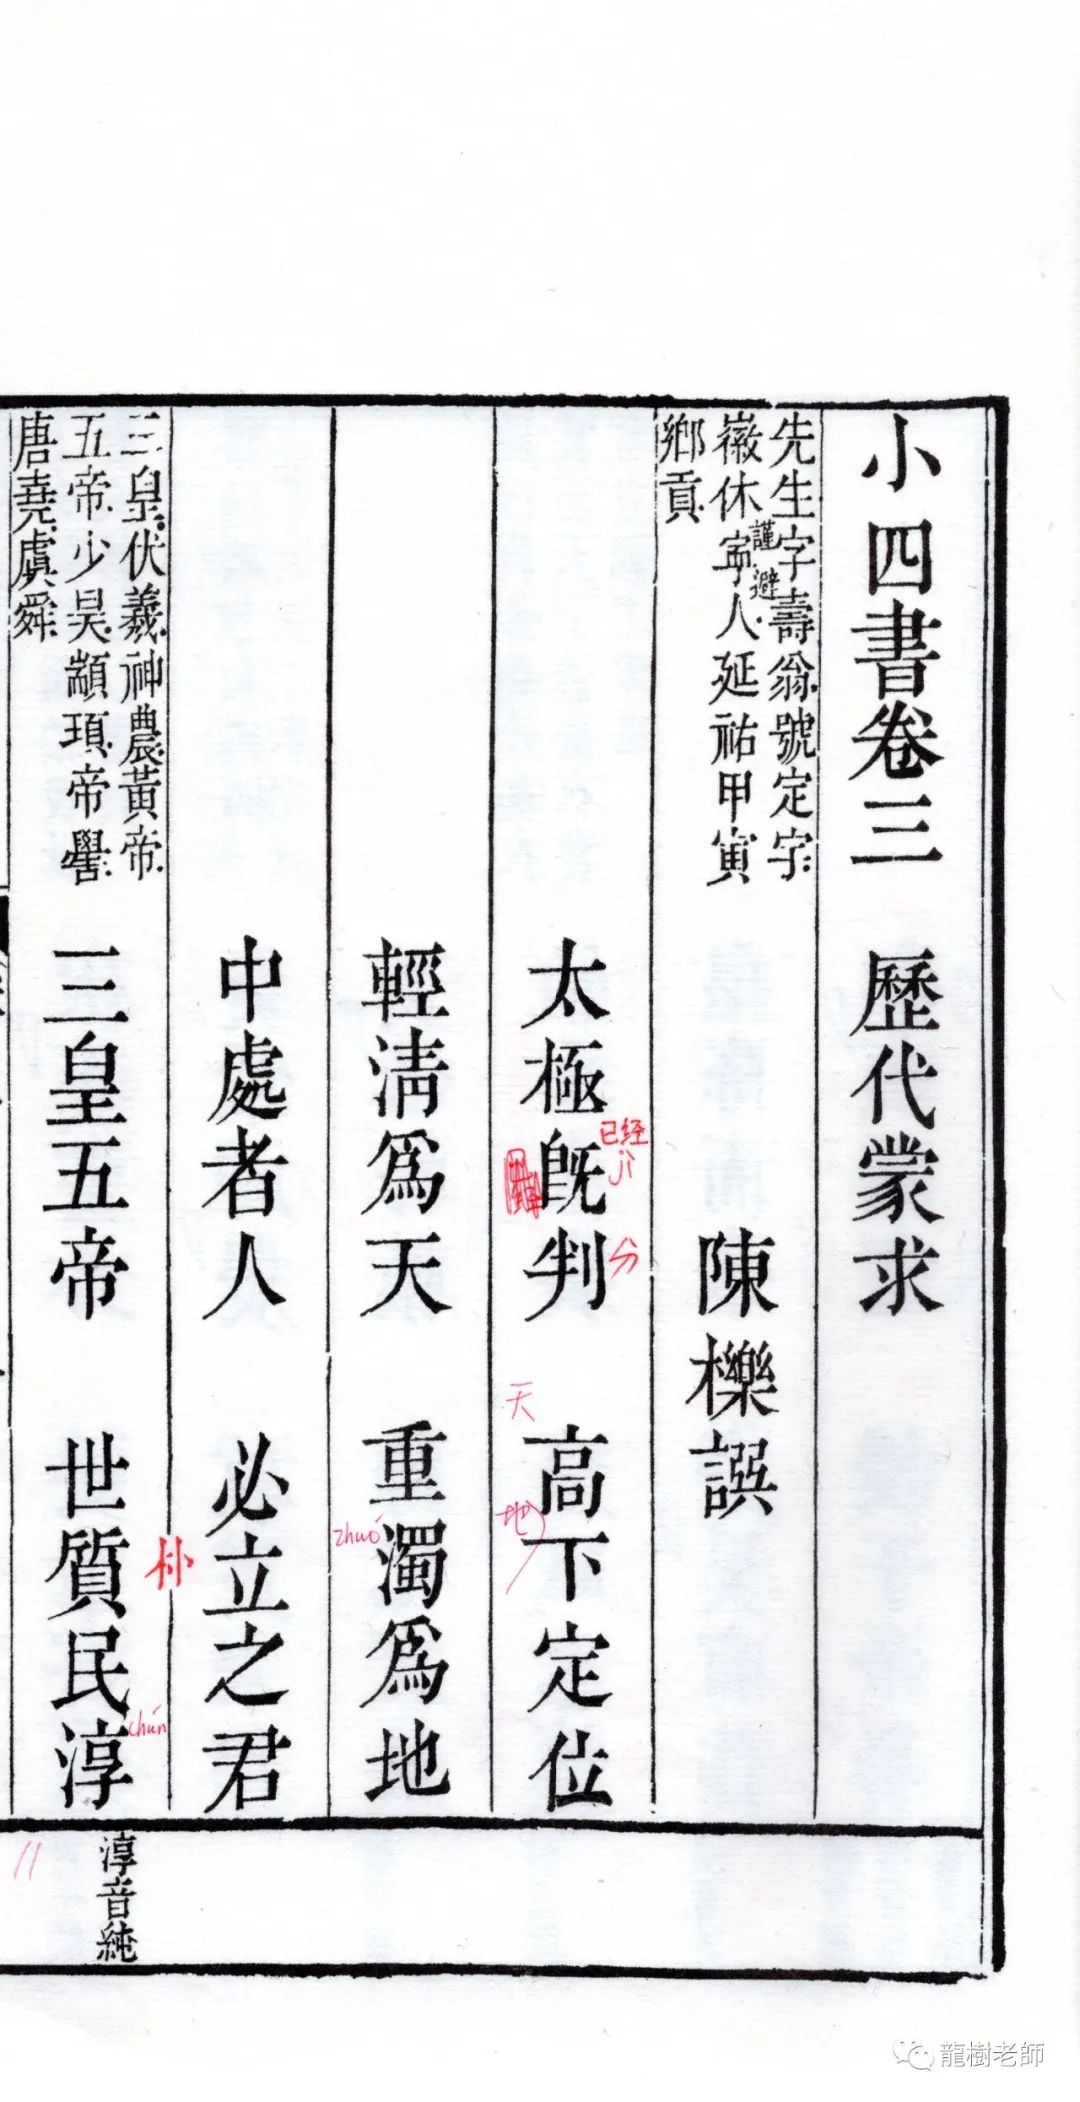 小四書卷三 歷代蒙求
先生字壽翁號定宇
徽休寧人延祐甲寅
謹避
鄉貢
陳櫟譔
太極旣判 高下定位
已经
jì
分
天
地
輕淸爲天 重濁爲地
zhuó
中處者人 必立之君
三皇伏羲神農黃帝
五帝少昊顓頊帝嚳
唐堯虞舜
三皇五帝 世質民淳
朴
chún
淳音純
11
龍樹老師